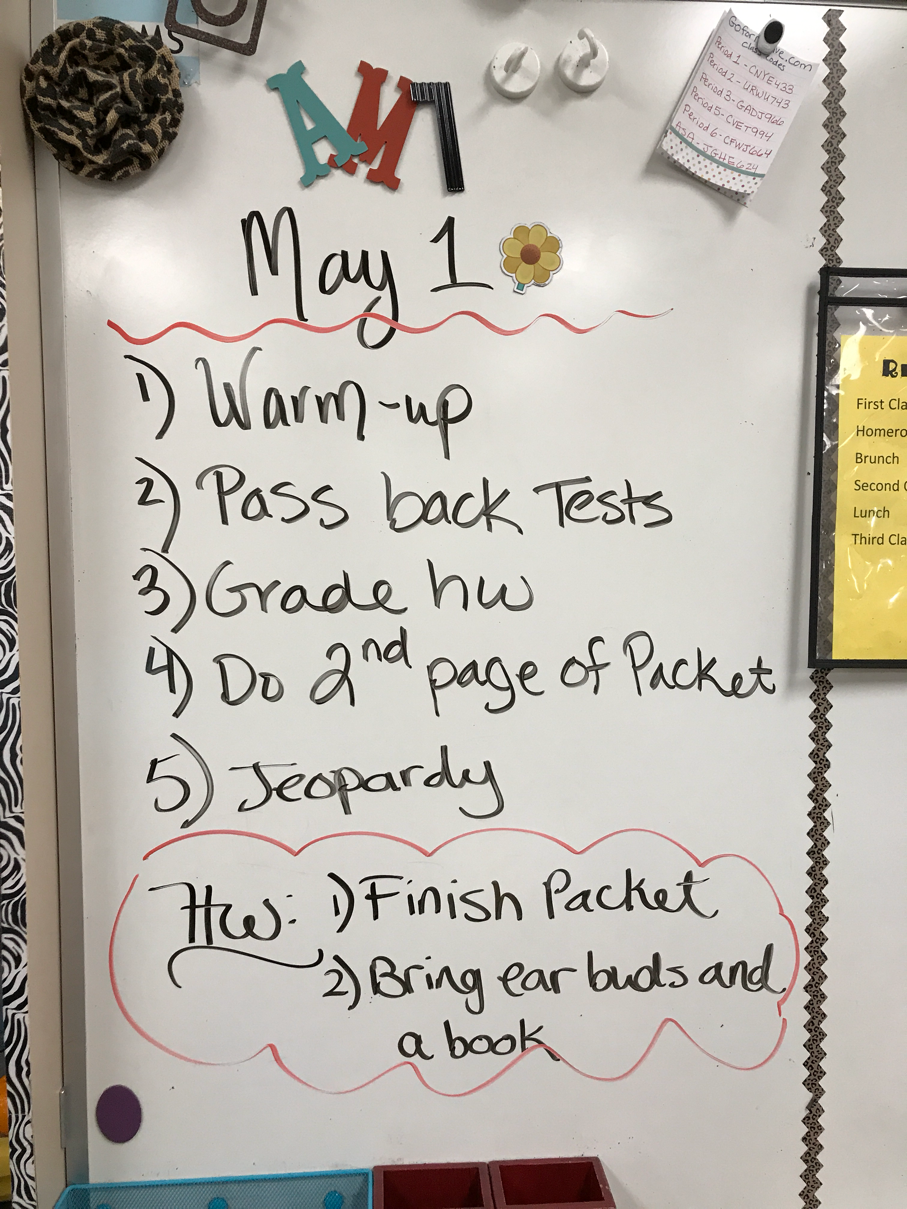 MS
AM7
Goformative.com
Class Codes
Period 1 - CNYE433
Period 2 - URWU743
Period 3 - GADJ966
Period 5 - CVET994
Period 6 - CFWJ664
ASA - JGHE624
May 1
1) Warm-up
2) Pass back Tests
3) Grade hw
4) Do 2nd page of Packet
5) Jeopardy
HW: 1) Finish Packet
2) Bring ear buds and
a book
First Cla
Homero
Brunch
Second
Lunch
Third Cla